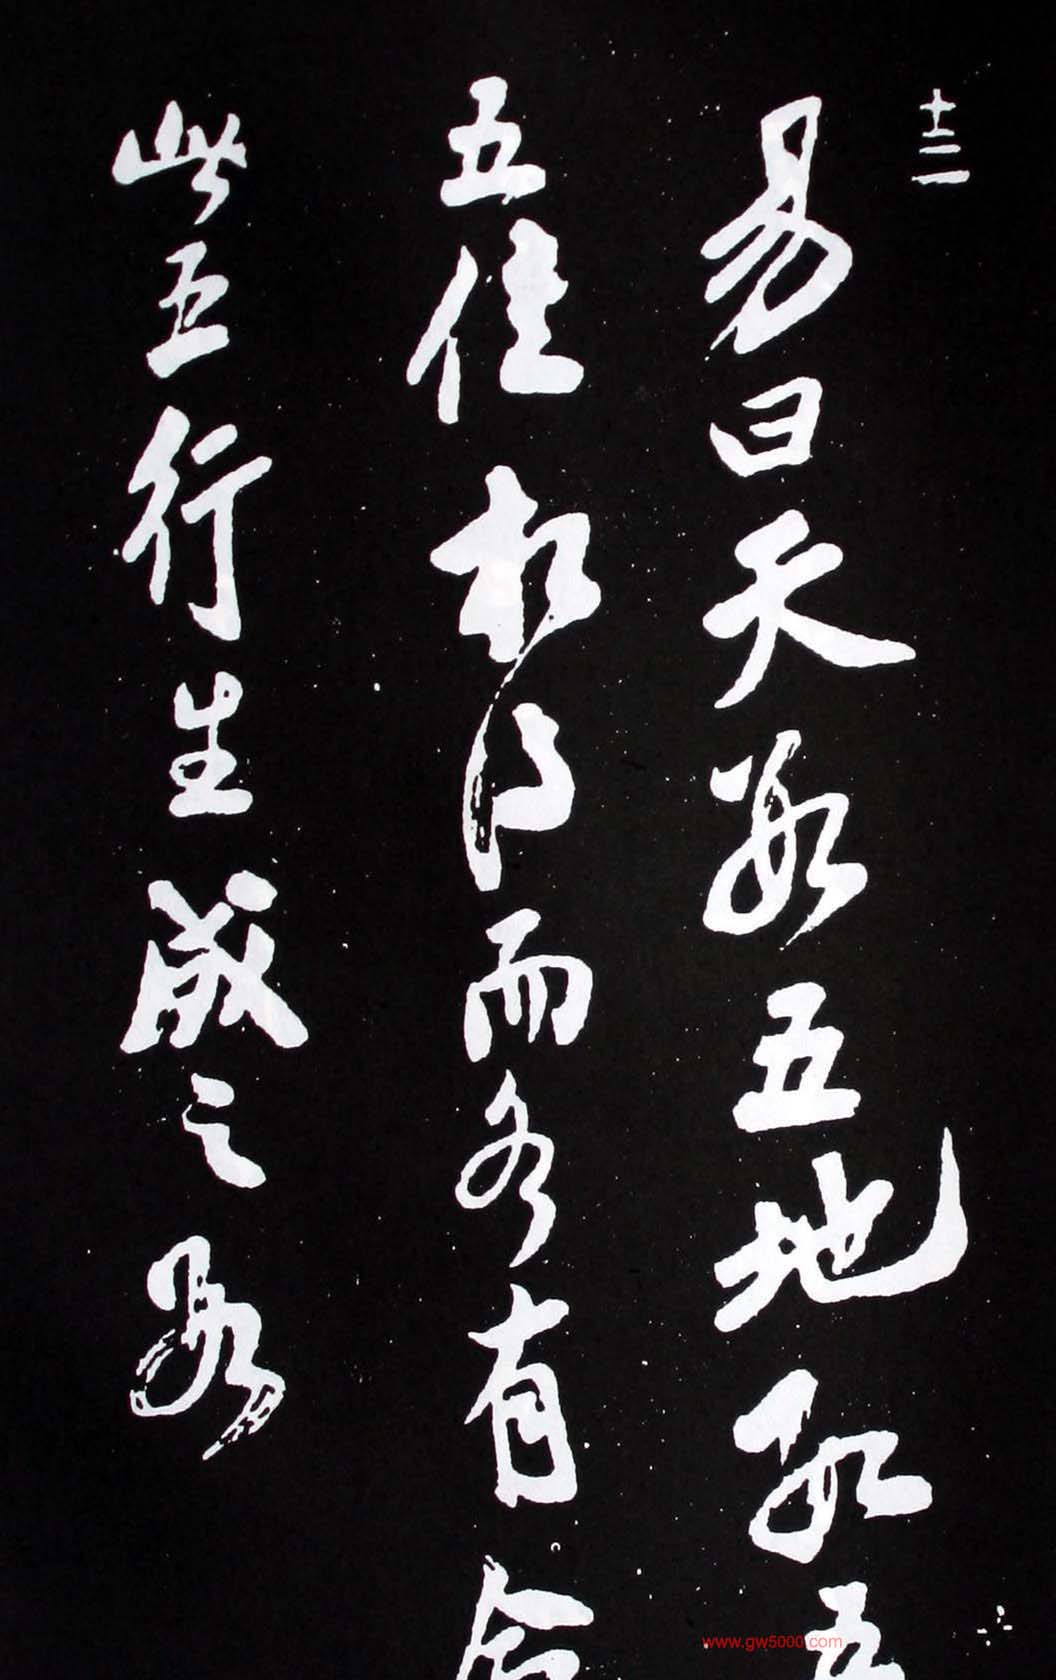 十三
易曰天數五地數五
五位相得而各有合
此五行生成之數
www.gw5000.com